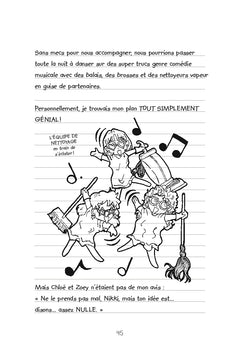 Sans mecs pour nous accompagner, nous pourrions passer
toute la nuit à danser sur des super trucs genre comédie
musicale avec des balais, des brosses et des nettoyeurs vapeur
en guise de partenaires.
Personnellement, je trouvais mon plan TOUT SIMPLEMENT
GÉNIAL !
L'ÉQUIPE DE
NETTOYAGE
en train de
s'éclater !
Mais Chloë et Zoey n'étaient pas de mon avis :
« Ne le prends pas mal, Nikki, mais ton idée est...
disons... assez NULLE. »
95